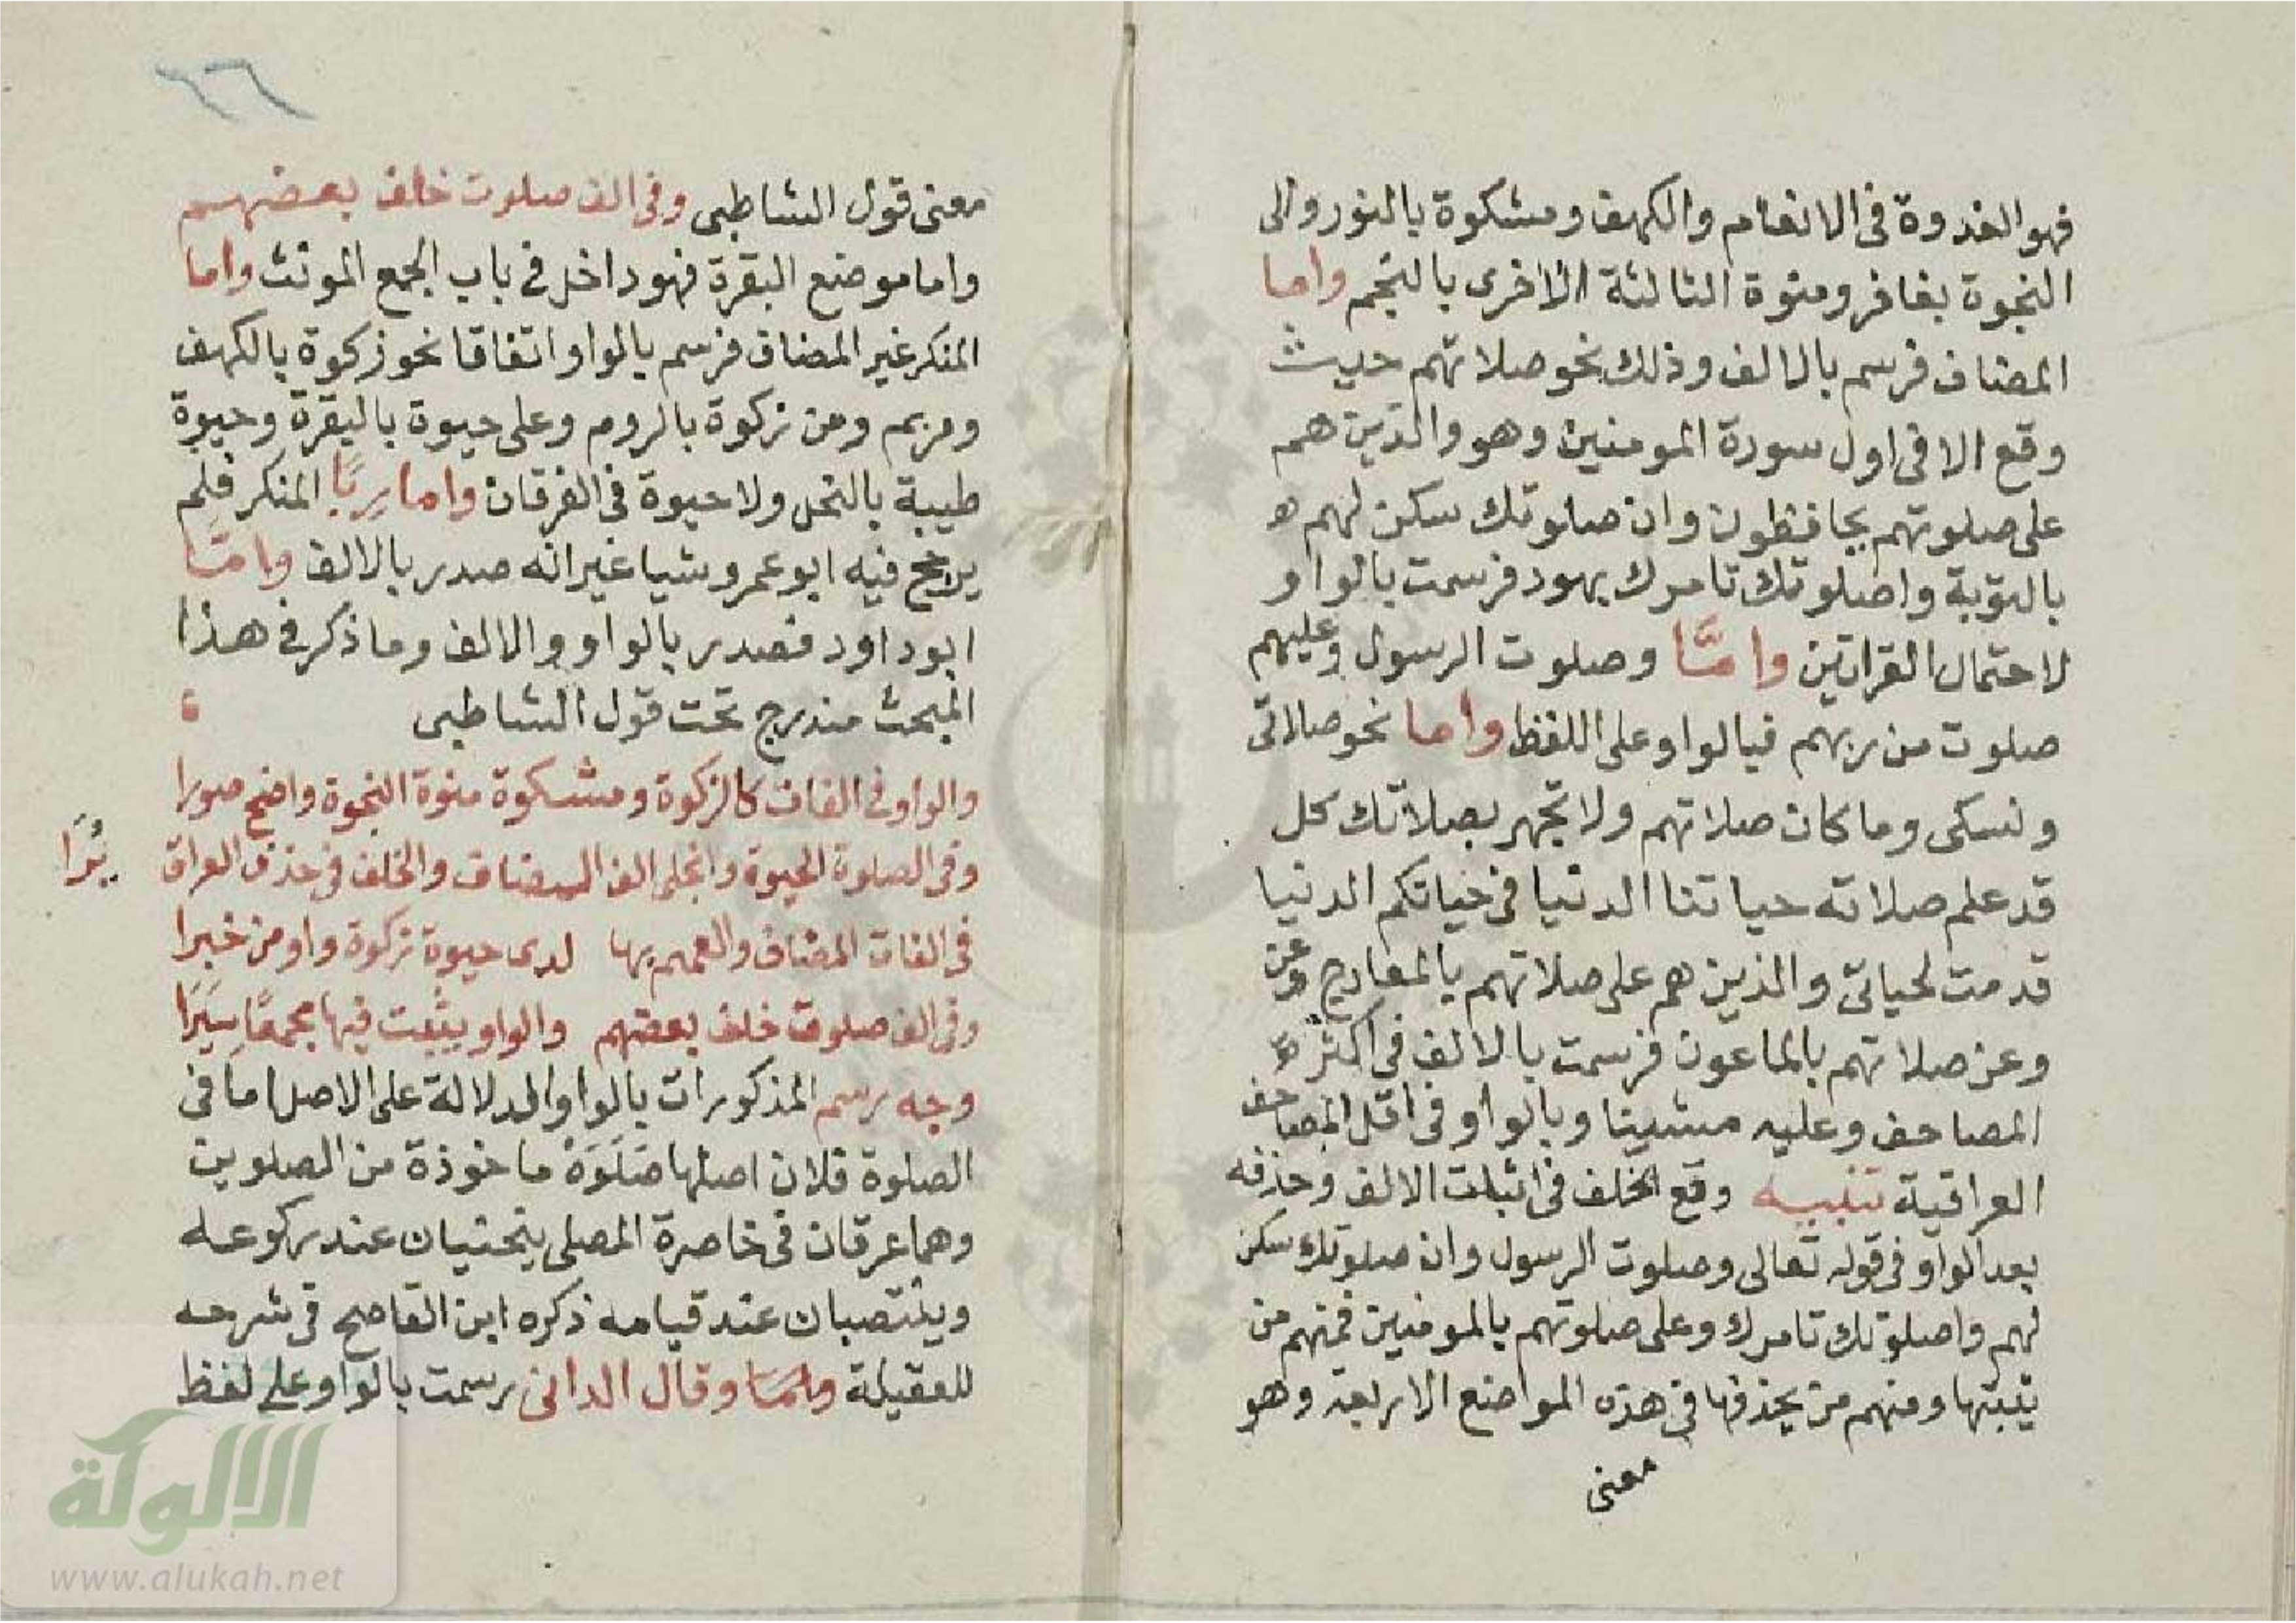 فهو الغدوة فى الانعام والكهف ومشكوة بالنور والى
النجوة بغافر ومنوة الثالثة الاخرى بالنجم واما
المضاف فرسم بالالف وذلك نحو صلاتهم حيث
وقع الا فى اول سورة المومنين وهو والذين هم
على صلوتهم يحافظون وان صلوتك سكن لهم
بالتوبة واصلوتك تامرك بهود فرسمت بالواو
لاحتمال القراتين واما وصلوت الرسول وعليهم
صلوت من ربهم فبالواو على اللفظ واما نحو صلاتى
ونسكى وما كان صلاتهم ولا تجهر بصلاتك كل
قد علم صلاته حياتنا الدنيا فى حياتكم الدنيا
قدمت لحياتى والذين هم على صلاتهم بالمعارج وعن
وعن صلاتهم بالماعون فرسمت بالالف فى اكثر
المصاحف وعليه مشينا وبالواو فى اقل المصاحف
العراقية تنبيه وقع الخلف فى اثبات الالف وحذفه
بعد الواو فى قوله تعالى وصلوت الرسول وان صلوتك سكن
لهم واصلوتك تامرك وعلى صلوتهم بالمومنين فمنهم من
يثبتها ومنهم من يحذفها فى هذه المواضع الاربعة وهو
معنى
٢٦
معنى قول الشاطبى وفى الف صلوت خلف بعضهم
واما موضع البقرة فهو داخل فى باب الجمع المونث واما
المنكر غير المضاف فرسم بالواو اتفاقا نحو زكوة بالكهف
ومريم ومن زكوة بالروم وعلى حيوة بالبقرة وحيوة
طيبة بالنحل ولا حيوة فى الفرقان واما رِبًا المنكر فلم
يرجح فيه ابو عمرو شيا غير انه صدر بالالف واما
ابو داود فصدر بالواو والالف وما ذكر فى هذا
المبحث مندرج تحت قول الشاطبى
والواو فى الفات كالزكوة ومشكوة منوة النجوة واضح صورا
وفى الصلوة الحيوة وانجلى الف المضاف والخلف فى حذف العراق يُرَا
فى الفات المضاف والعمم بها لدى حيوة زكوة واو من خبرا
وفى الف صلوت خلف بعضهم والواو يثبت فيها مجمعًا سِيَرَا
وجه رسم المذكورات بالواو الدلالة على الاصل اما فى
الصلوة فلان اصلها صَلَوَة ماخوذة من الصلوين
وهما عرقان فى خاصرة المصلى ينحنيان عند ركوعه
وينتصبان عند قيامه ذكره ابن القاصح فى شرحه
للعقيلة وقال الدانى رسمت بالواو على لفظ
الألوكة
www.alukah.net